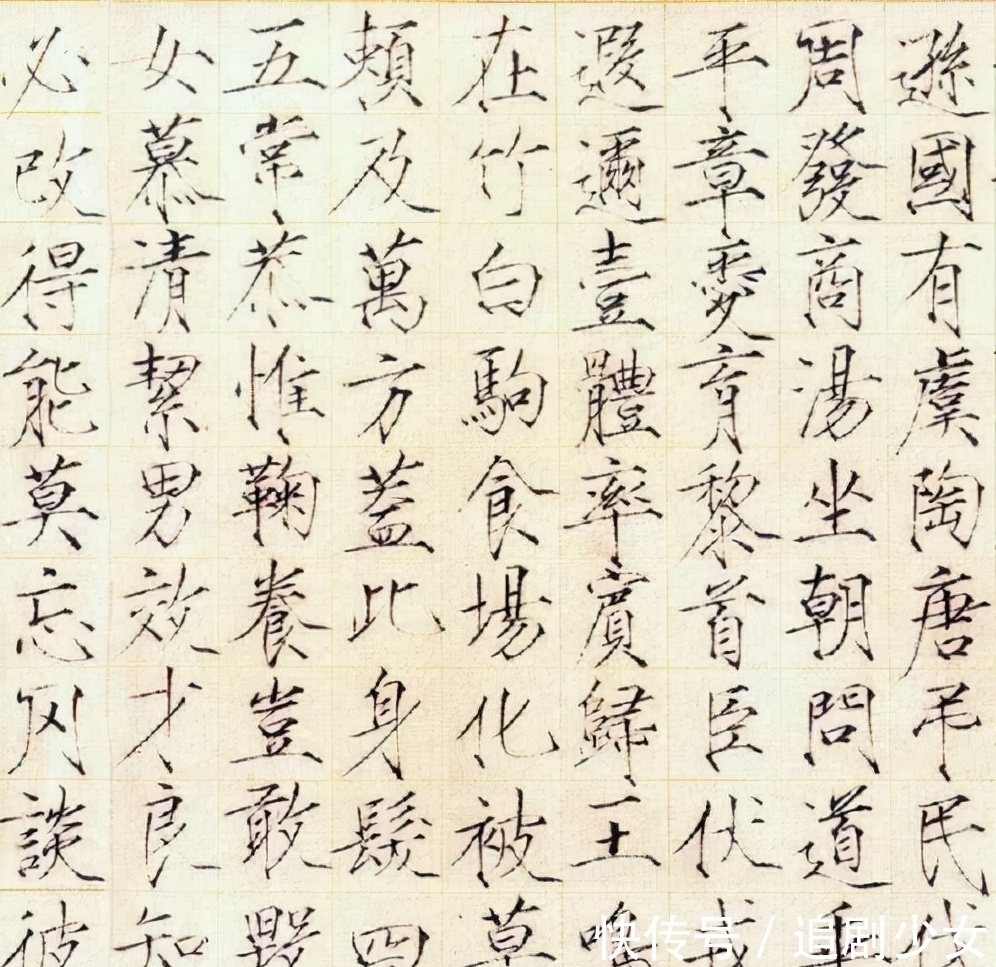 遜國有虞陶唐弔民伐
周發商湯坐朝問道垂
平章愛育黎首臣伏戎
遐邇壹體率賓歸王鳴
在竹白駒食場化被草
賴及萬方蓋此身髮四
五常恭惟鞠養豈敢毀
女慕清絜男效才良知
必改得能莫忘罔談彼
快传号 / 追剧少女